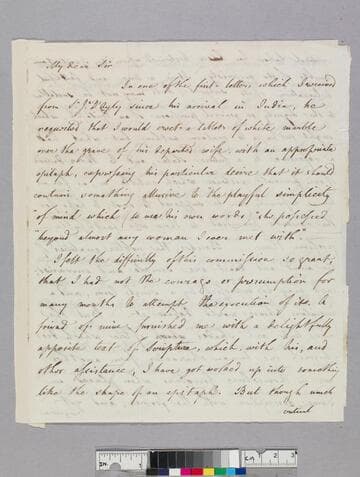 My dear Sir
In one of the first letters which I received
from Sir J. D'Oyly since his arrival in India, he
requested that I would erect a tablet of white marble
over the grave of his departed wife with an appropriate
epitaph, expressing his particular desire that it should
contain something allusive to the playful simplicity
of mind which (to use his own words) "she possessed
"beyond almost any woman I ever met with".
I felt the difficulty of this commission so great,
that I had not the courage or presumption for
many months to attempt the execution of it. A
friend of mine furnished me with a delightfully
apposite text of Scripture, which, with his, and
other assistance, I have got worked up into something
like the shape of an epitaph. But though much